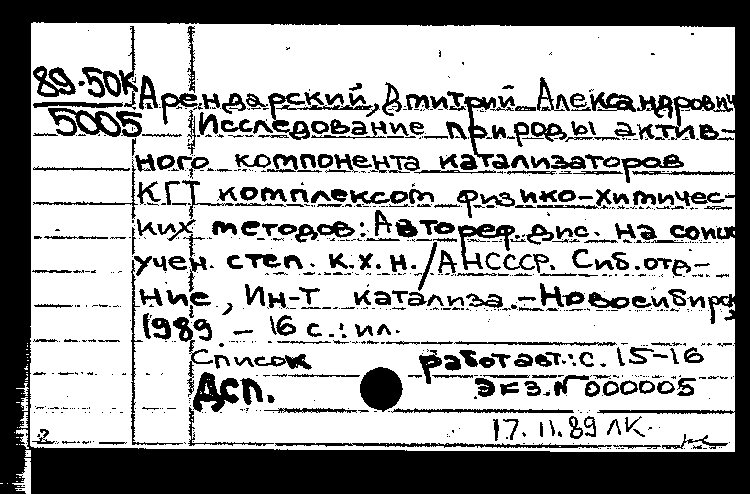 89-50К
5005
Арендарский, Дмитрий Александрович
Исследование природы актив-
ного компонента катализаторов
КГТ комплексом физико-химичес-
ких методов: Автореф. дис. на соиск
учен. степ. к.х.н. / АН СССР. Сиб. отд-
ние, Ин-т катализа. - Новосибирск,
1989 - 16 с.: ил.
Список работ авт.: с. 15-16
Дсп. Экз. N 000005
17.11.89 ЛК.
2